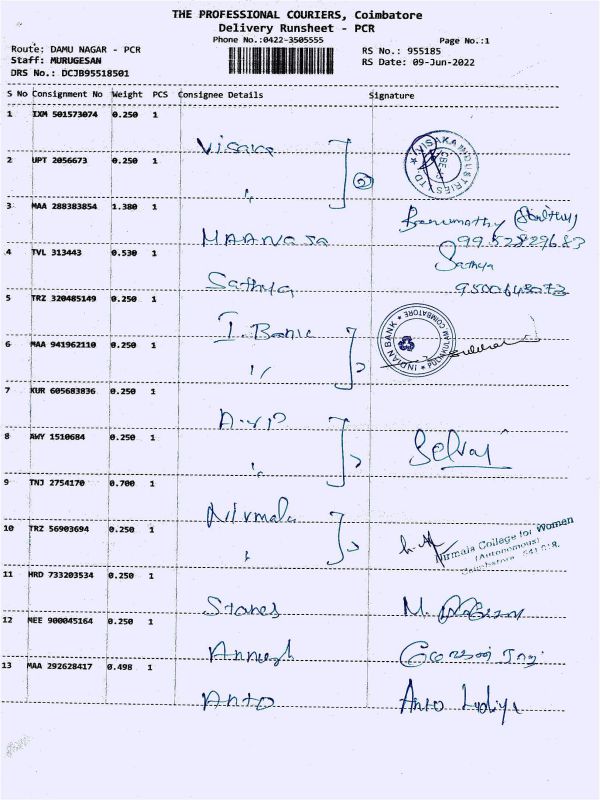 THE PROFESSIONAL COURIERS, Coimbatore
Delivery Runsheet - PCR
Phone No.:0422-3505555
Page No.:1
Route: DAMU NAGAR - PCR
RS No.: 955185
Staff: MURUGESAN
RS Date: 09-Jun-2022
DRS No.: DCJB95518501
S No Consignment No Weight PCS Consignee Details Signature
1 IXM 501573074 0.250 1
Visaka
VISAKA INDUSTRIES LTD.
2 UPT 2056673 0.250 1
"
2
3 MAA 288383854 1.380 1
MAANASA
9952829683
4 TVL 313443 0.530 1
Sathya
Sathya
9500648073
5 TRZ 320485149 0.250 1
I. Bank
INDIAN BANK * PULIAKULAM COIMBATORE
6 MAA 941962110 0.250 1
"
2
7 KUR 605683836 0.250 1
A.V.P
8 AWY 1510684 0.250 1
"
2
Selvaj
9 TNJ 2754170 0.700 1
Nirmala
10 TRZ 56903694 0.250 1
"
2
Nirmala College for Women
(Autonomous)
Coimbatore - 641 018.
11 HRD 733203534 0.250 1
Stanes
M.
12 MEE 900045164 0.250 1
13 MAA 292628417 0.498 1
Anto
Anto